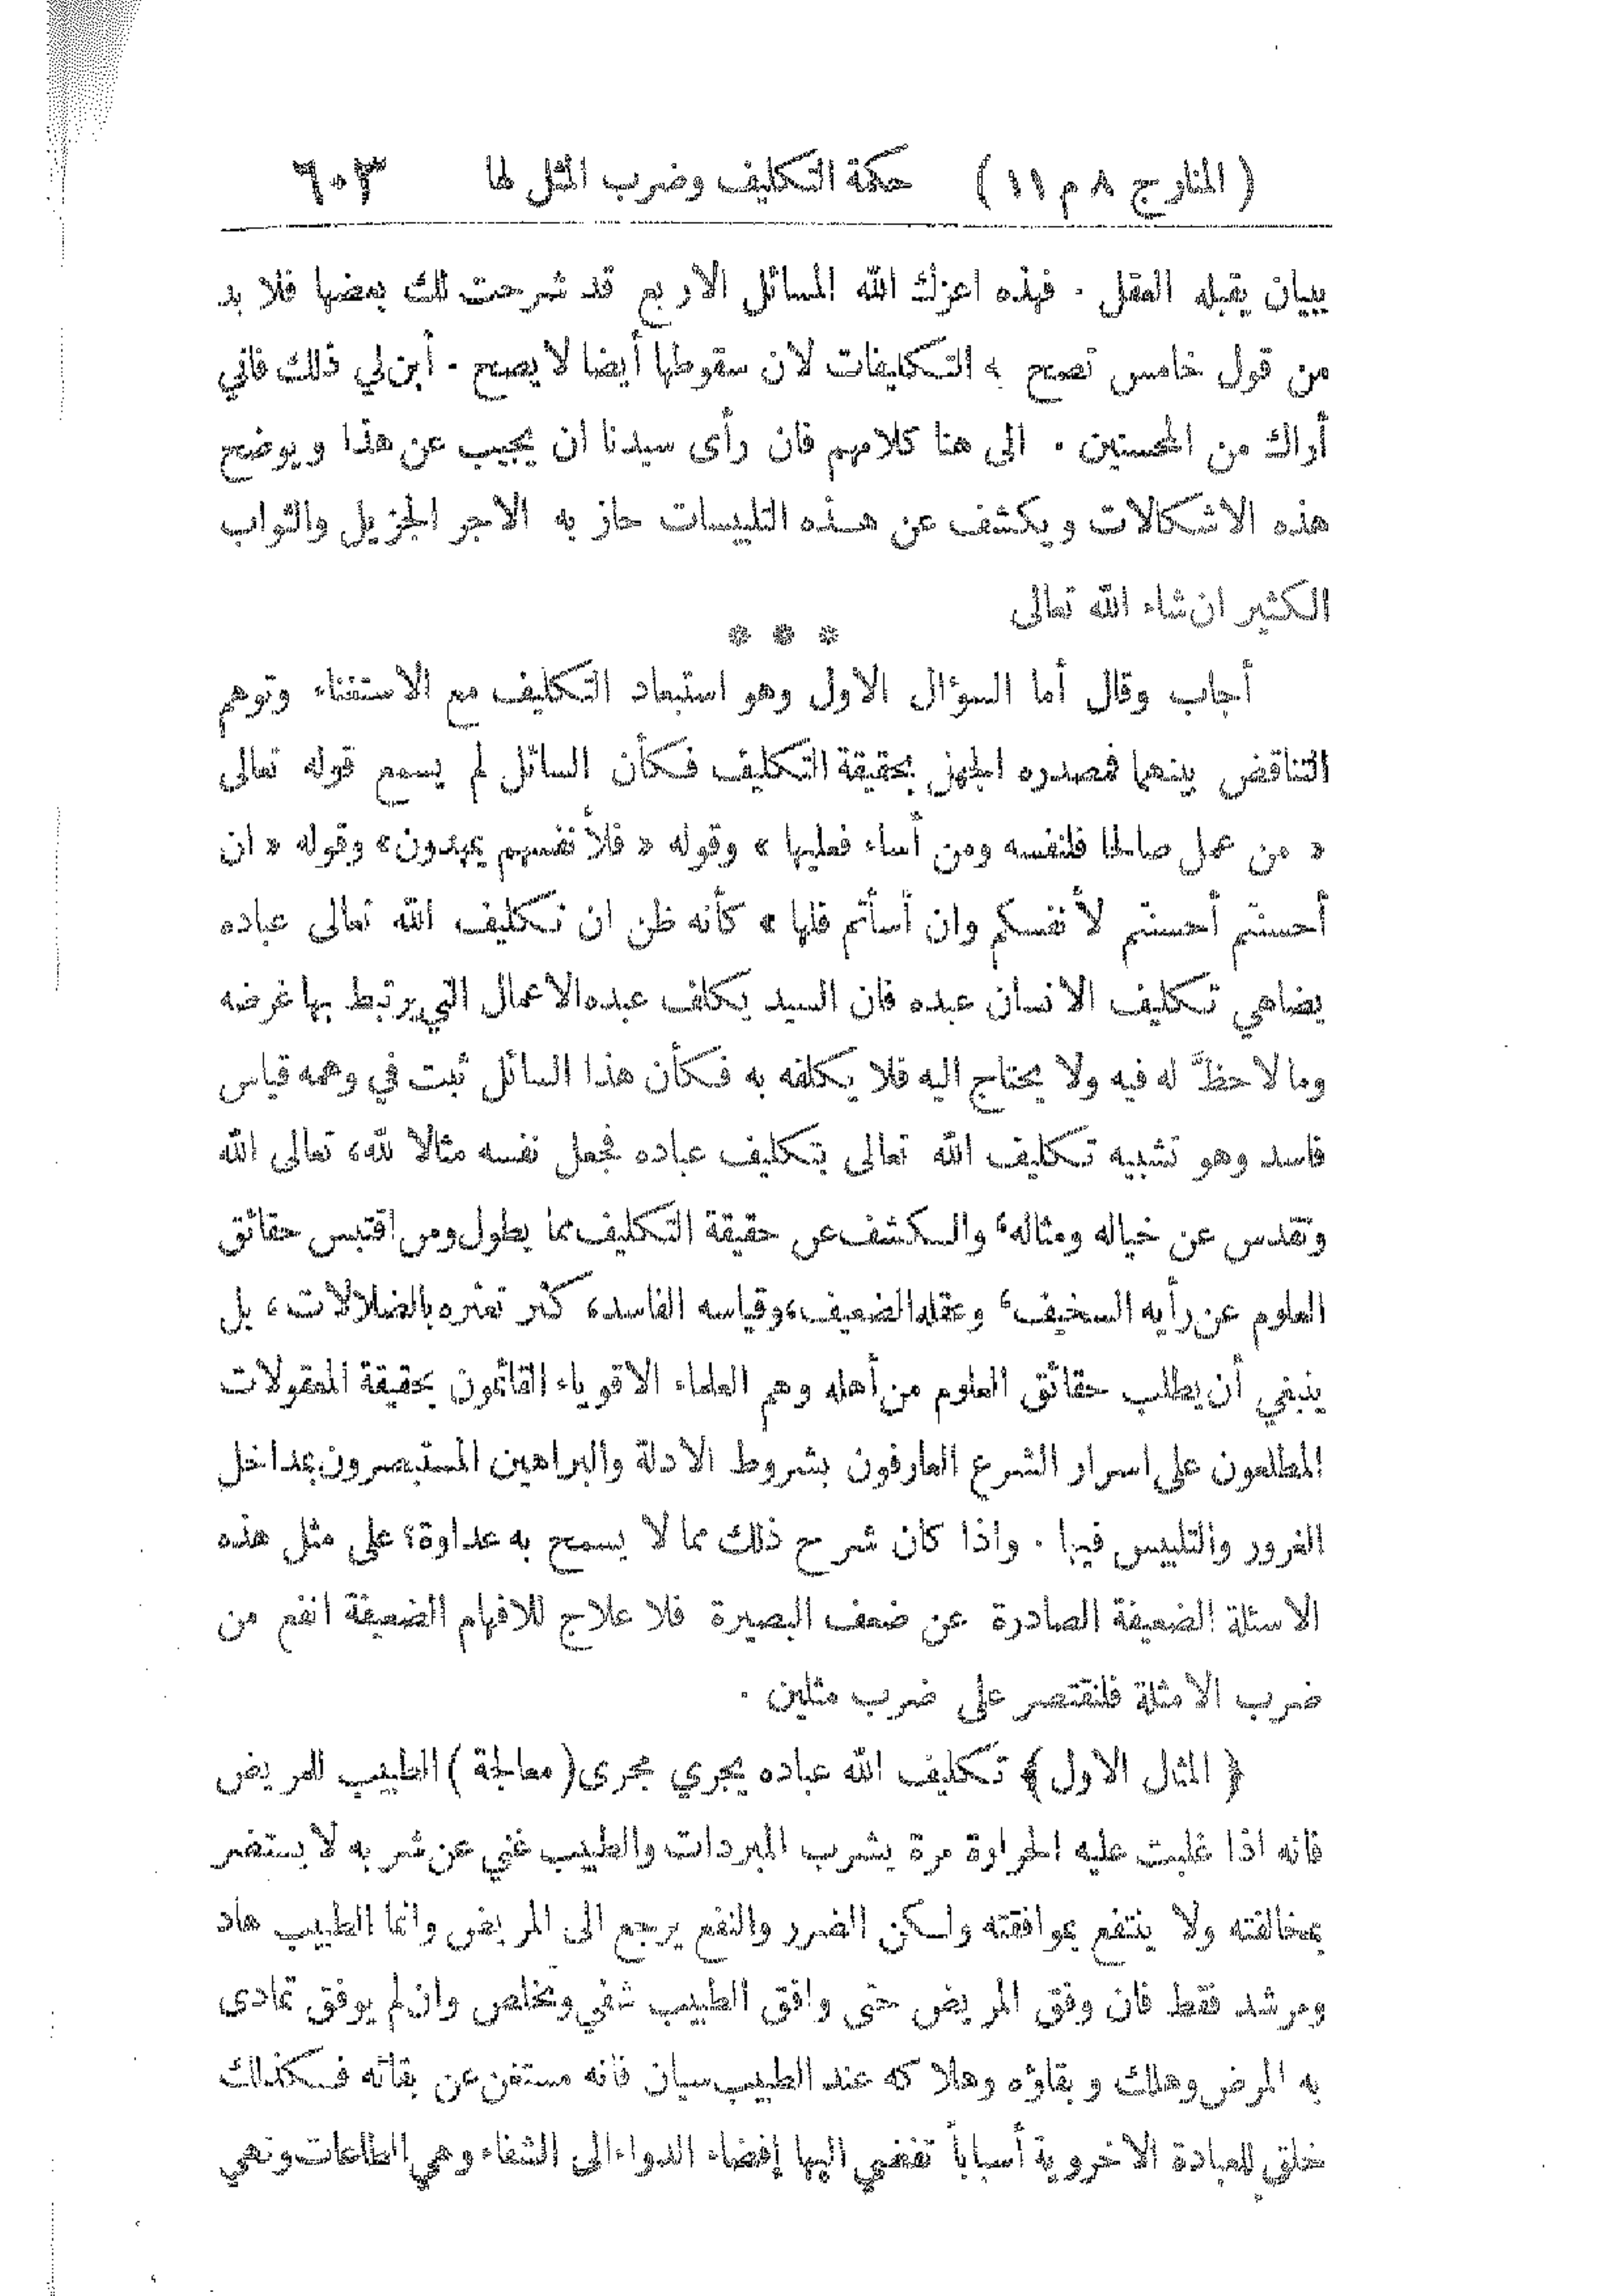 ( المنار ج ٨ م ١١ ) حكمة التكليف وضرب المثل لها ٦٠٣
ببيان يقبله العقل . فهذه اعزك الله المسائل الاربع قد شرحت لك بعضها فلا بد
من قول خامس تصح به التكليفات لان سقوطها أيضا لا يصح . أبن لي ذلك فاني
أراك من المحسنين . الى هنا كلامهم فان رأى سيدنا ان يجيب عن هذا ويوضح
هذه الاشكالات ويكشف عن هذه التلبيسات حاز به الاجر الجزيل والثواب
الكثير ان شاء الله تعالى
* * *
أجاب وقال أما السؤال الاول وهو استبعاد التكليف مع الاستغناء وتوهم
التناقض بينهما فمصدره الجهل بحقيقة التكليف فكأن السائل لم يسمع قوله تعالى
« من عمل صالحا فلنفسه ومن أساء فعليها » وقوله « فلأنفسهم يمهدون » وقوله « ان
أحسنتم أحسنتم لأنفسكم وان أسأتم فلها » كأنه ظن ان تكليف الله تعالى عباده
يضاهي تكليف الانسان عبده فان السيد يكلف عبده الاعمال التي يرتبط بها غرضه
وما لا حظَّ له فيه ولا يحتاج اليه فلا يكلفه به فكأن هذا السائل ثبت في وهمه قياس
فاسد وهو تشبيه تكليف الله تعالى بتكليف عباده فجعل نفسه مثالا لله، تعالى الله
وتقدس عن خياله ومثاله، والكشف عن حقيقة التكليف مما يطول ومن اقتبس حقائق
العلوم عن رأيه السخيف، وعقله الضعيف، وقياسه الفاسد، كثر تعثره بالضلالات، بل
ينبغي أن يطلب حقائق العلوم من أهله وهم العلماء الاقوياء القائمون بحقيقة المعقولات
المطلعون على اسرار الشرع العارفون بشروط الادلة والبراهين المستبصرون بمداخل
الغرور والتلبيس فيها . واذا كان شرح ذلك مما لا يسمح به عداوة؟ على مثل هذه
الاسئلة الضعيفة الصادرة عن ضعف البصيرة فلا علاج للافهام الضعيفة انفع من
ضرب الامثلة فلنقتصر على ضرب مثلين .
﴿ المثال الاول ﴾ تكليف الله عباده يجري مجرى ( معالجة ) الطبيب للمريض
فانه اذا غلبت عليه الحرارة مرة يشرب المبردات والطبيب غني عن شربه لا يستضر
بمخالفته ولا ينتفع بموافقته ولكن الضرر والنفع يرجع الى المريض وانما الطبيب هاد
ومرشد فقط فان وفق المريض حتى وافق الطبيب شفي وتخلص وان لم يوفق تمادى
به المرض وهلك وبقاؤه وهلاكه عند الطبيب سيان فانه مستغن عن بقائه فكذلك
خلق للعبادة الاخروية أسباباً تفضي اليها إفضاء الدواء الى الشفاء وهي الطاعات ونهي